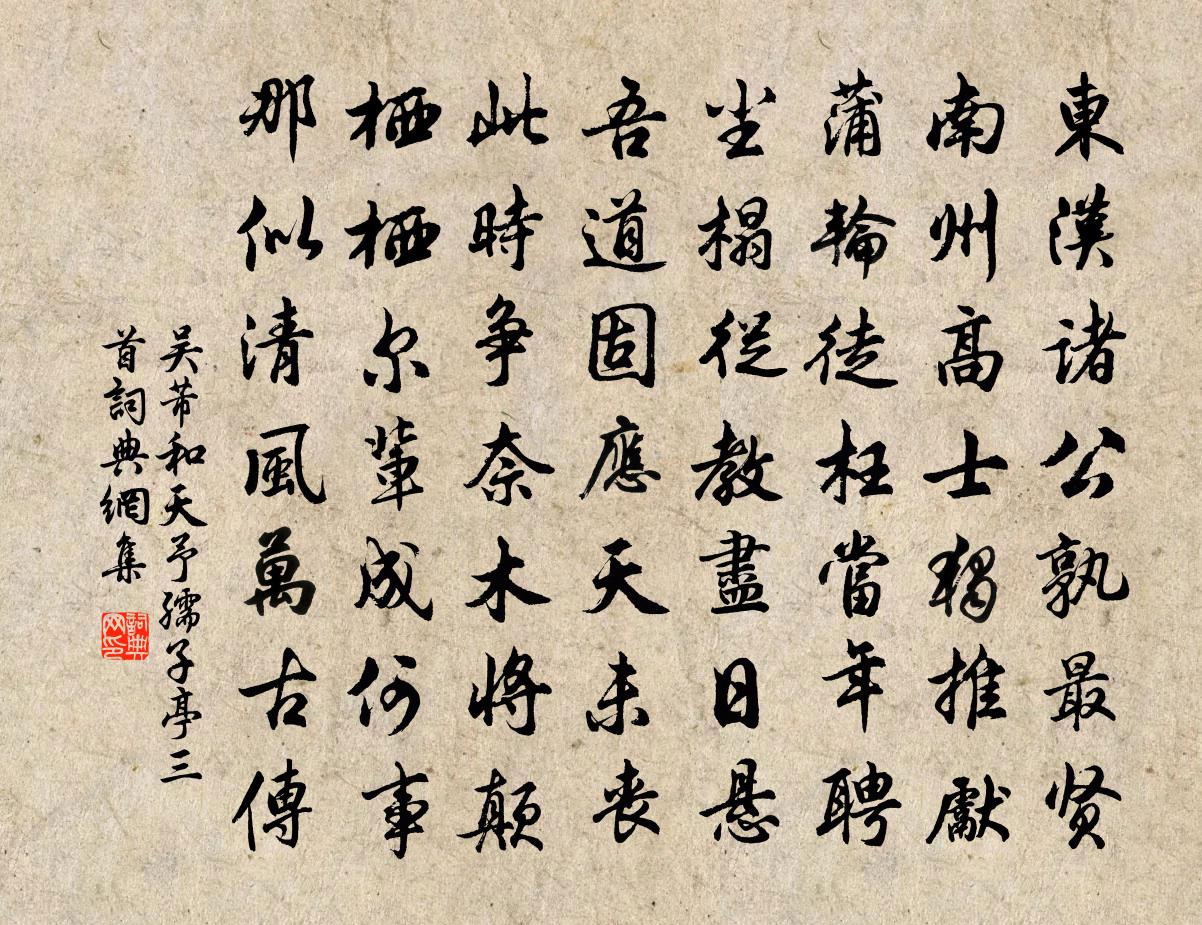 東漢諸公孰最贤
南州高士獨推獻
蒲輪徒枉當年聘
坐榻從教盡日懸
吾道固應天未喪
此時争奈木將顛
栖栖尔輩成何事
那似清風萬古傳
吴芾和天予孺子亭三
首詞典網集
詞典
网印